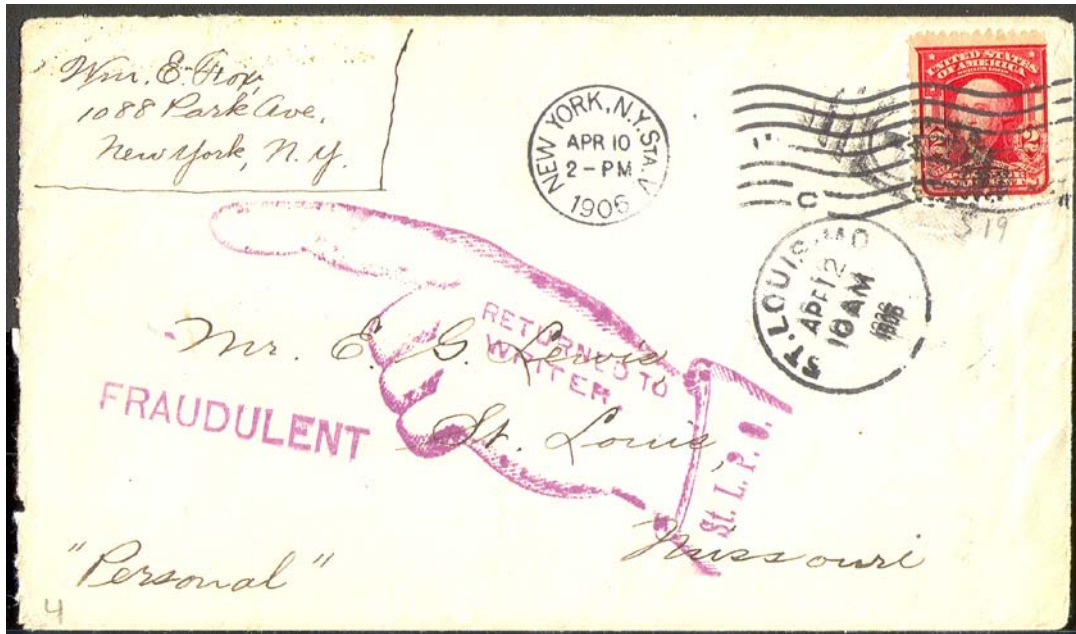 Wm. E. Fox,
1088 Park Ave.
New York, N.Y.
NEW YORK, N.Y. STA. V
APR 10
2-PM
1906
UNITED STATES
OF AMERICA
2 2
ST. LOUIS, MO
APR 12
10 AM
1906
519
RETURNED TO
WRITER
St. L. P. O.
Mr. E. G. Lewis,
FRAUDULENT
St. Louis,
Missouri
"Personal"
4